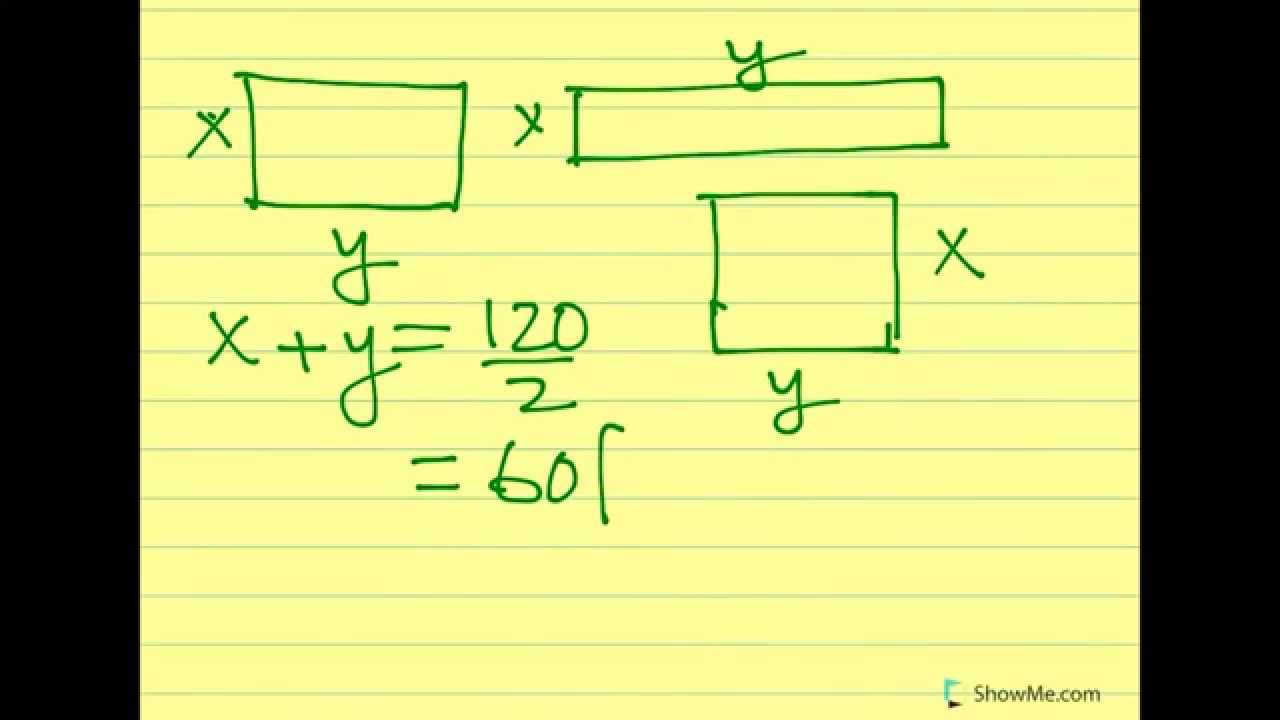 y
x
x
y
x
x + y = 120/2
y
= 60
ShowMe.com